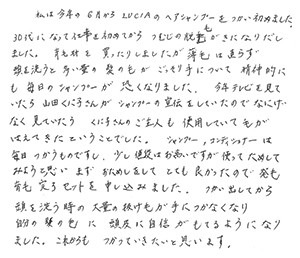 私は今年の6月から LUCIAのヘアシャンプーを つかい初めました。
30代になって仕事を初めてから つむじの脱毛がきになりだし
ました。 育毛材を 買ったりしましたが 薄毛は直らず
頭を洗うと 多い量の 髪の毛が ごっそり手について 精神的に
も 毎日のシャンプーが 恐くなりました。 今年テレビを見て
いたら 山田くに子さんが シャンプーの宣伝をしていたので なにげ
なく見ていたら くに子さんのご主人も 使用していて 毛が
はえてきたということでした。 シャンプー、コンディショナーは
毎日つかうものですし、少し値段はお高いですが使ってためして
みようと思い まず おためしをして とても良かったので 発毛
育毛 完ろセットを 申し込みました。 つかい出してから
頭を洗う時の 大量の抜け毛が手につかなくなり
自分の髪の毛に 頭皮に自信がもてるようになり
ました。これからも つかっていきたいと思います。